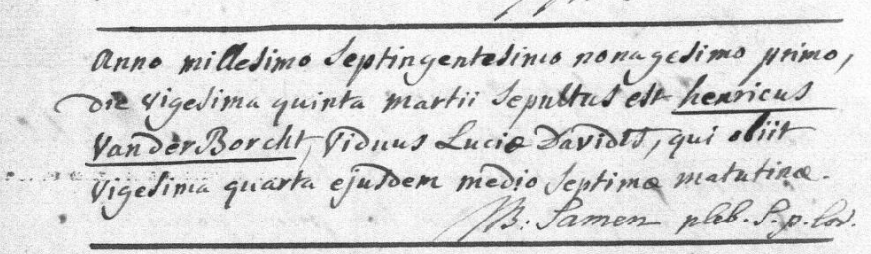 Anno millesimo Septingentesimo nonagesimo primo,
die vigesima quinta martii Sepultus est henricus
VanderBorcht, viduus Luciæ Davidts, qui obiit
vigesima quarta ejusdem medio Septimæ matutinæ.
B: Samen pleb. S. p. Lov.